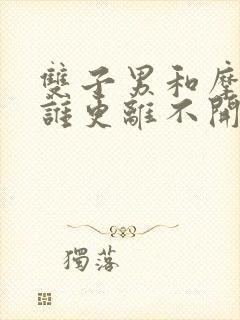 雙子男和摩
誰更離不開
獨落